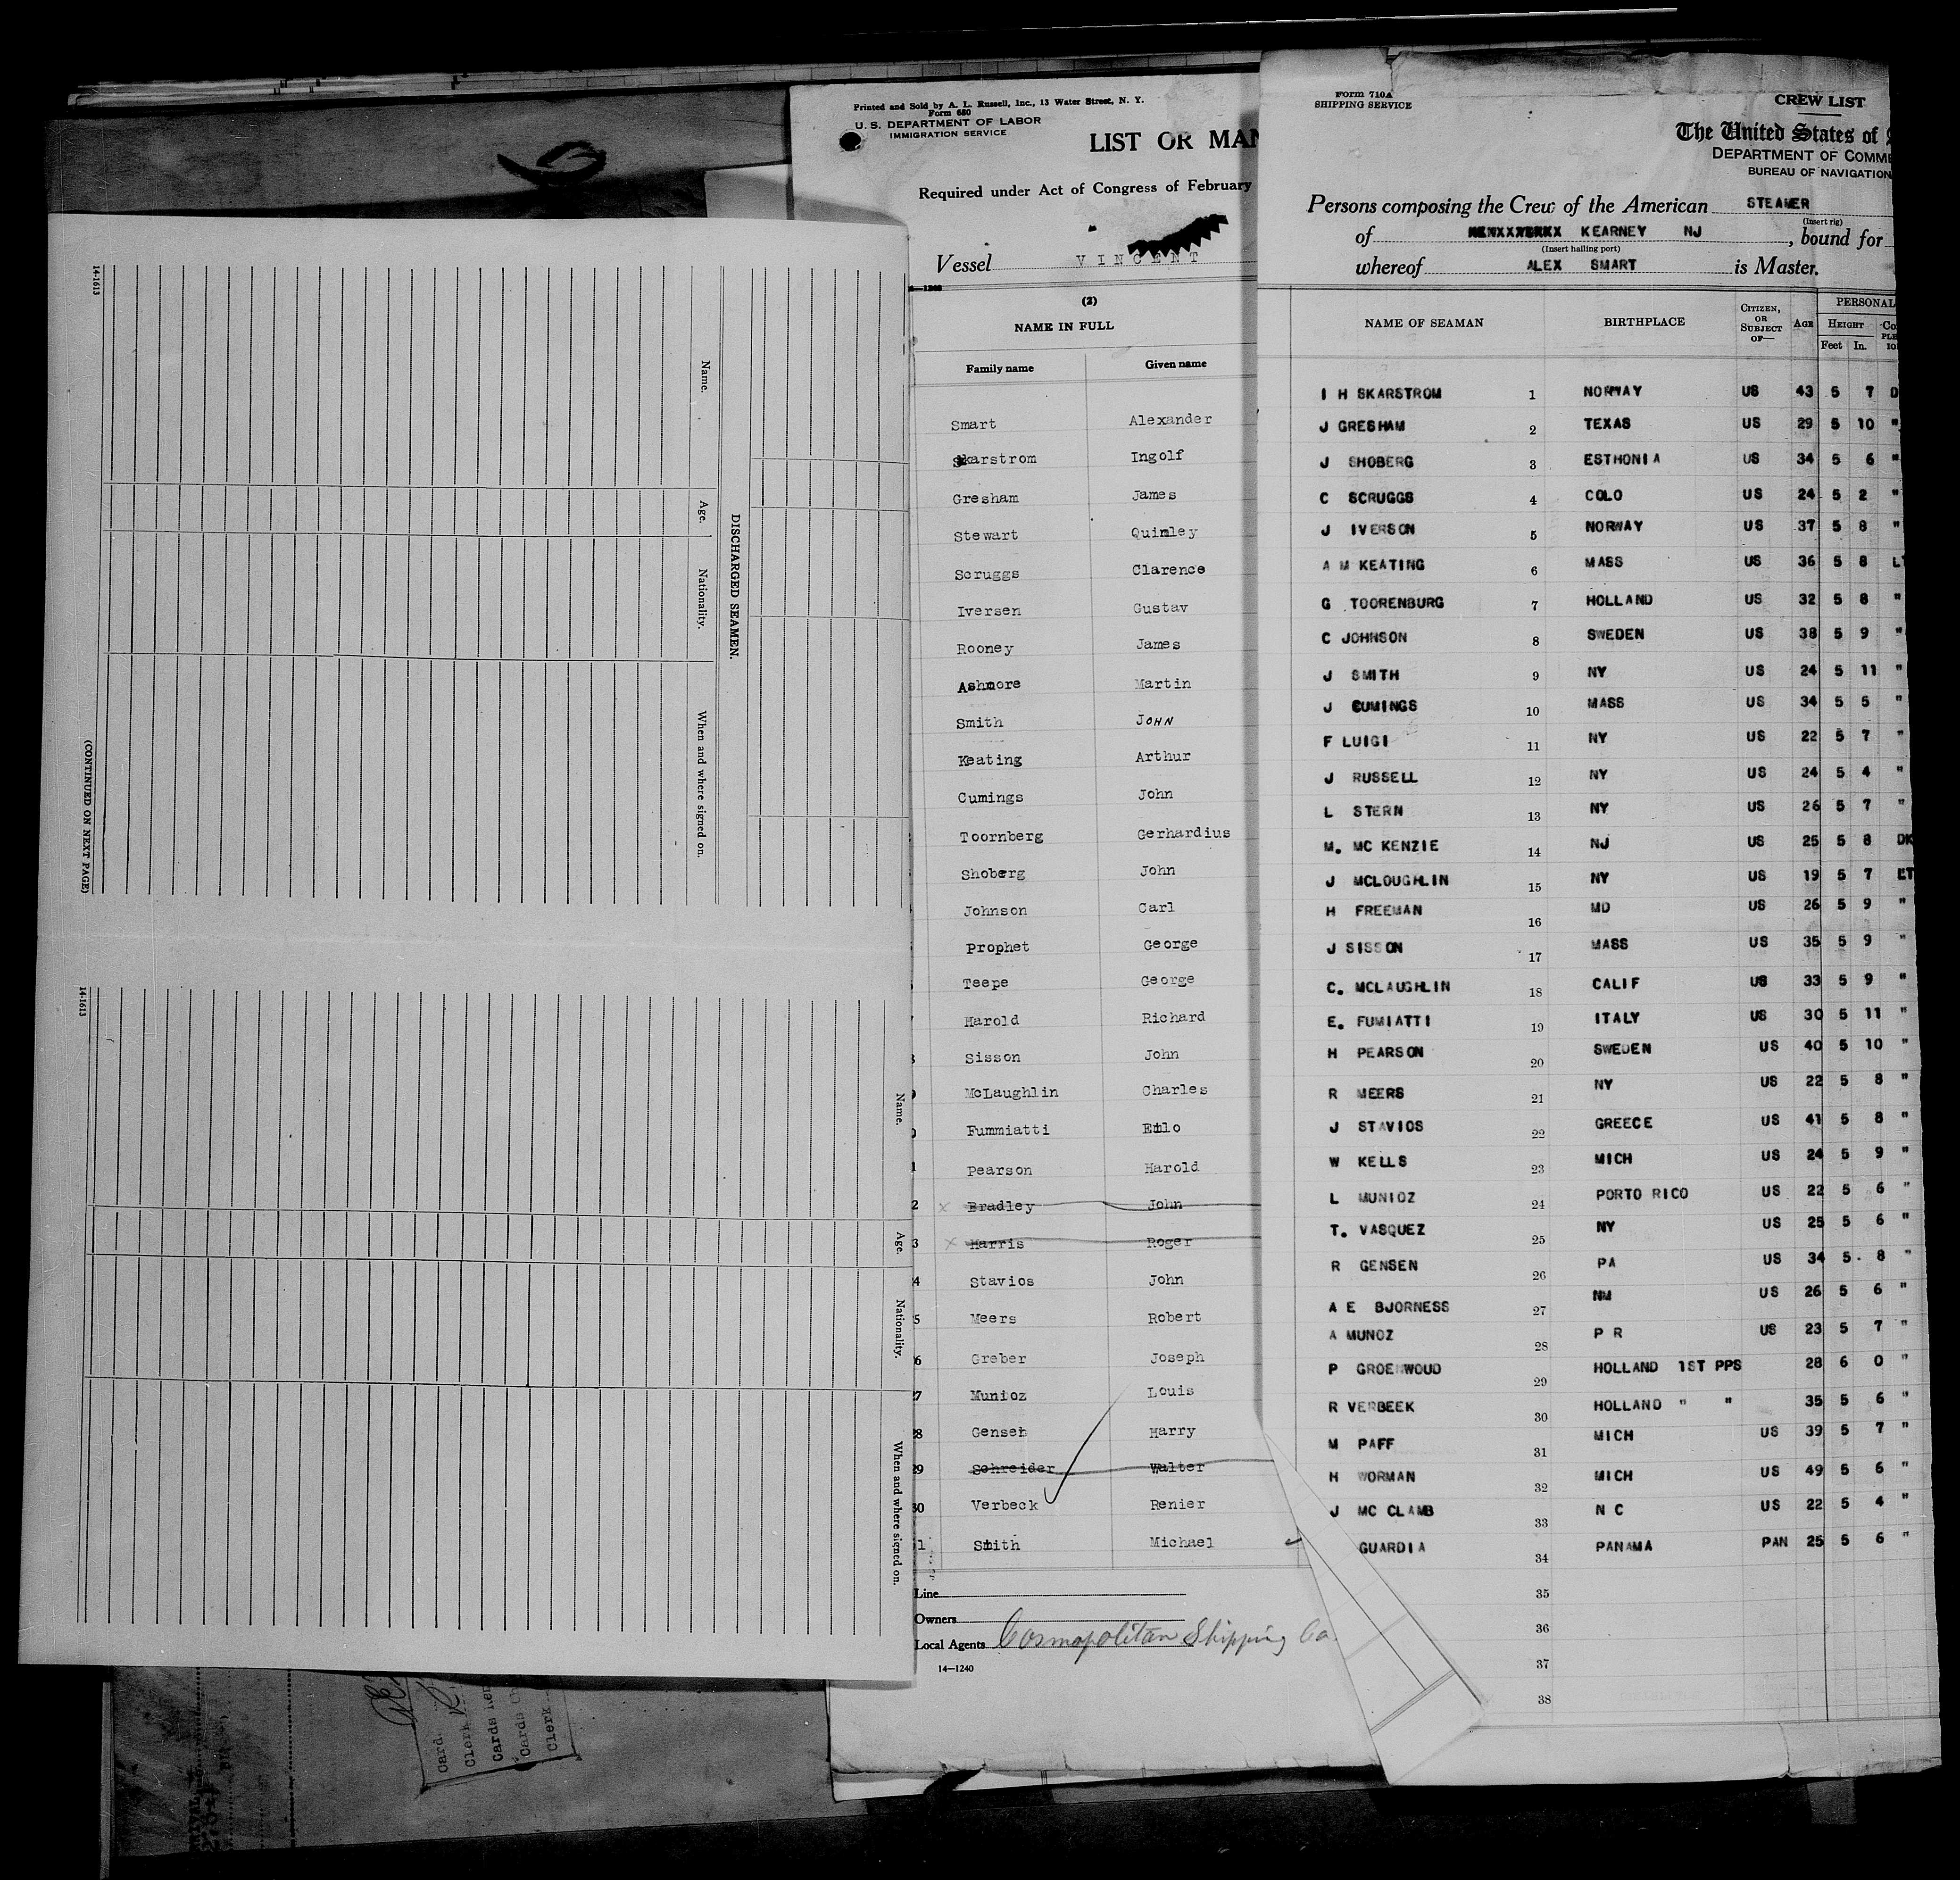 14-1613
Name.
Age.
Nationality.
When and where signed on.
DISCHARGED SEAMEN.
(CONTINUED ON NEXT PAGE)
14-1613
Name.
Age.
Nationality.
When and where signed on.
Card
Clerk
Cards
Cards
Clerk
Printed and Sold by A. L. Russell, Inc., 13 Water Street, N. Y.
Form 680
U. S. DEPARTMENT OF LABOR
IMMIGRATION SERVICE
LIST OR MAN
Required under Act of Congress of February
Vessel VINCENT
(2)
NAME IN FULL
Family name Given name
Smart Alexander
Skarstrom Ingolf
Gresham James
Stewart Quimley
Scruggs Clarence
Iversen Gustav
Rooney James
Ashmore Martin
Smith JOHN
Keating Arthur
Cumings John
Toornberg Gerhardius
Shoberg John
Johnson Carl
Prophet George
Teepe George
Harold Richard
Sisson John
McLaughlin Charles
Fummiatti
Pearson Harold
2 x Bradley John
3 x Harris Roger
4 Stavios John
5 Meers Robert
6 Greber Joseph
7 Munioz Louis
8 Harry
29 Schreider Walter
30 Verbeck Renier
1 Smith Michael
Line
Owners
Local Agents Cosmopolitan Shipping Co.
14—1240
Form 710A
SHIPPING SERVICE
CREW LIST
The United States of
DEPARTMENT OF COMME
BUREAU OF NAVIGATION
Persons composing the Crew of the American STEAMER
(Insert rig)
of KEARNEY NJ, bound for
(Insert hailing port)
whereof ALEX SMART is Master.
NAME OF SEAMAN BIRTHPLACE CITIZEN, OR SUBJECT OF— AGE PERSONAL
HEIGHT
Feet In.
I H SKARSTROM 1 NORWAY US 43 5 7 D
J GRESHAM 2 TEXAS US 29 5 10 "
J SHOBERG 3 ESTHONIA US 34 5 6 "
C SCRUGGS 4 COLO US 24 5 2 "
J IVERSON 5 NORWAY US 37 5 8 "
A M KEATING 6 MASS US 36 5 8 LT
G TOORENBURG 7 HOLLAND US 32 5 8 "
C JOHNSON 8 SWEDEN US 38 5 9 "
J SMITH 9 NY US 24 5 11 "
J CUMINGS 10 MASS US 34 5 5 "
F LUIGI 11 NY US 22 5 7 "
J RUSSELL 12 NY US 24 5 4 "
L STERN 13 NY US 26 5 7 "
M. MC KENZIE 14 NJ US 25 5 8 DK
J MCLOUGHLIN 15 NY US 19 5 7 LT
H FREEMAN 16 MD US 26 5 9 "
J SISSON 17 MASS US 35 5 9 "
C. MCLAUGHLIN 18 CALIF US 33 5 9 "
E. FUMIATTI 19 ITALY US 30 5 11 "
H PEARSON 20 SWEDEN US 40 5 10 "
R MEERS 21 NY US 22 5 8 "
J STAVIOS 22 GREECE US 41 5 8 "
W KELLS 23 MICH US 24 5 9 "
L MUNIOZ 24 PORTO RICO US 22 5 6 "
T. VASQUEZ 25 NY US 25 5 6 "
R GENSEN 26 PA US 34 5 8 "
A E BJORNESS 27 NM US 26 5 6 "
A MUNOZ 28 P R US 23 5 7 "
P GROENWOUD 29 HOLLAND 1ST PPS 28 6 0 "
R VERBEEK 30 HOLLAND " " 35 5 6 "
M PAFF 31 MICH US 39 5 7 "
H WORMAN 32 MICH US 49 5 6 "
J MC CLAMB 33 N C US 22 5 4 "
GUARDIA 34 PANAMA PAN 25 5 6 "
35
36
37
38